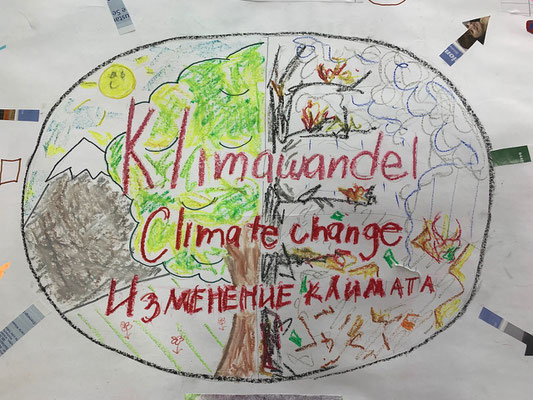 Klimawandel
Climate change
Изменение климата